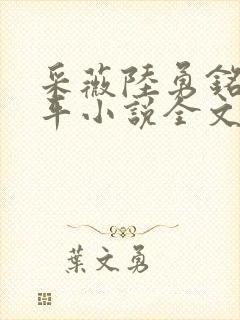 采薇陸勇銘
年小說全文
葉文勇